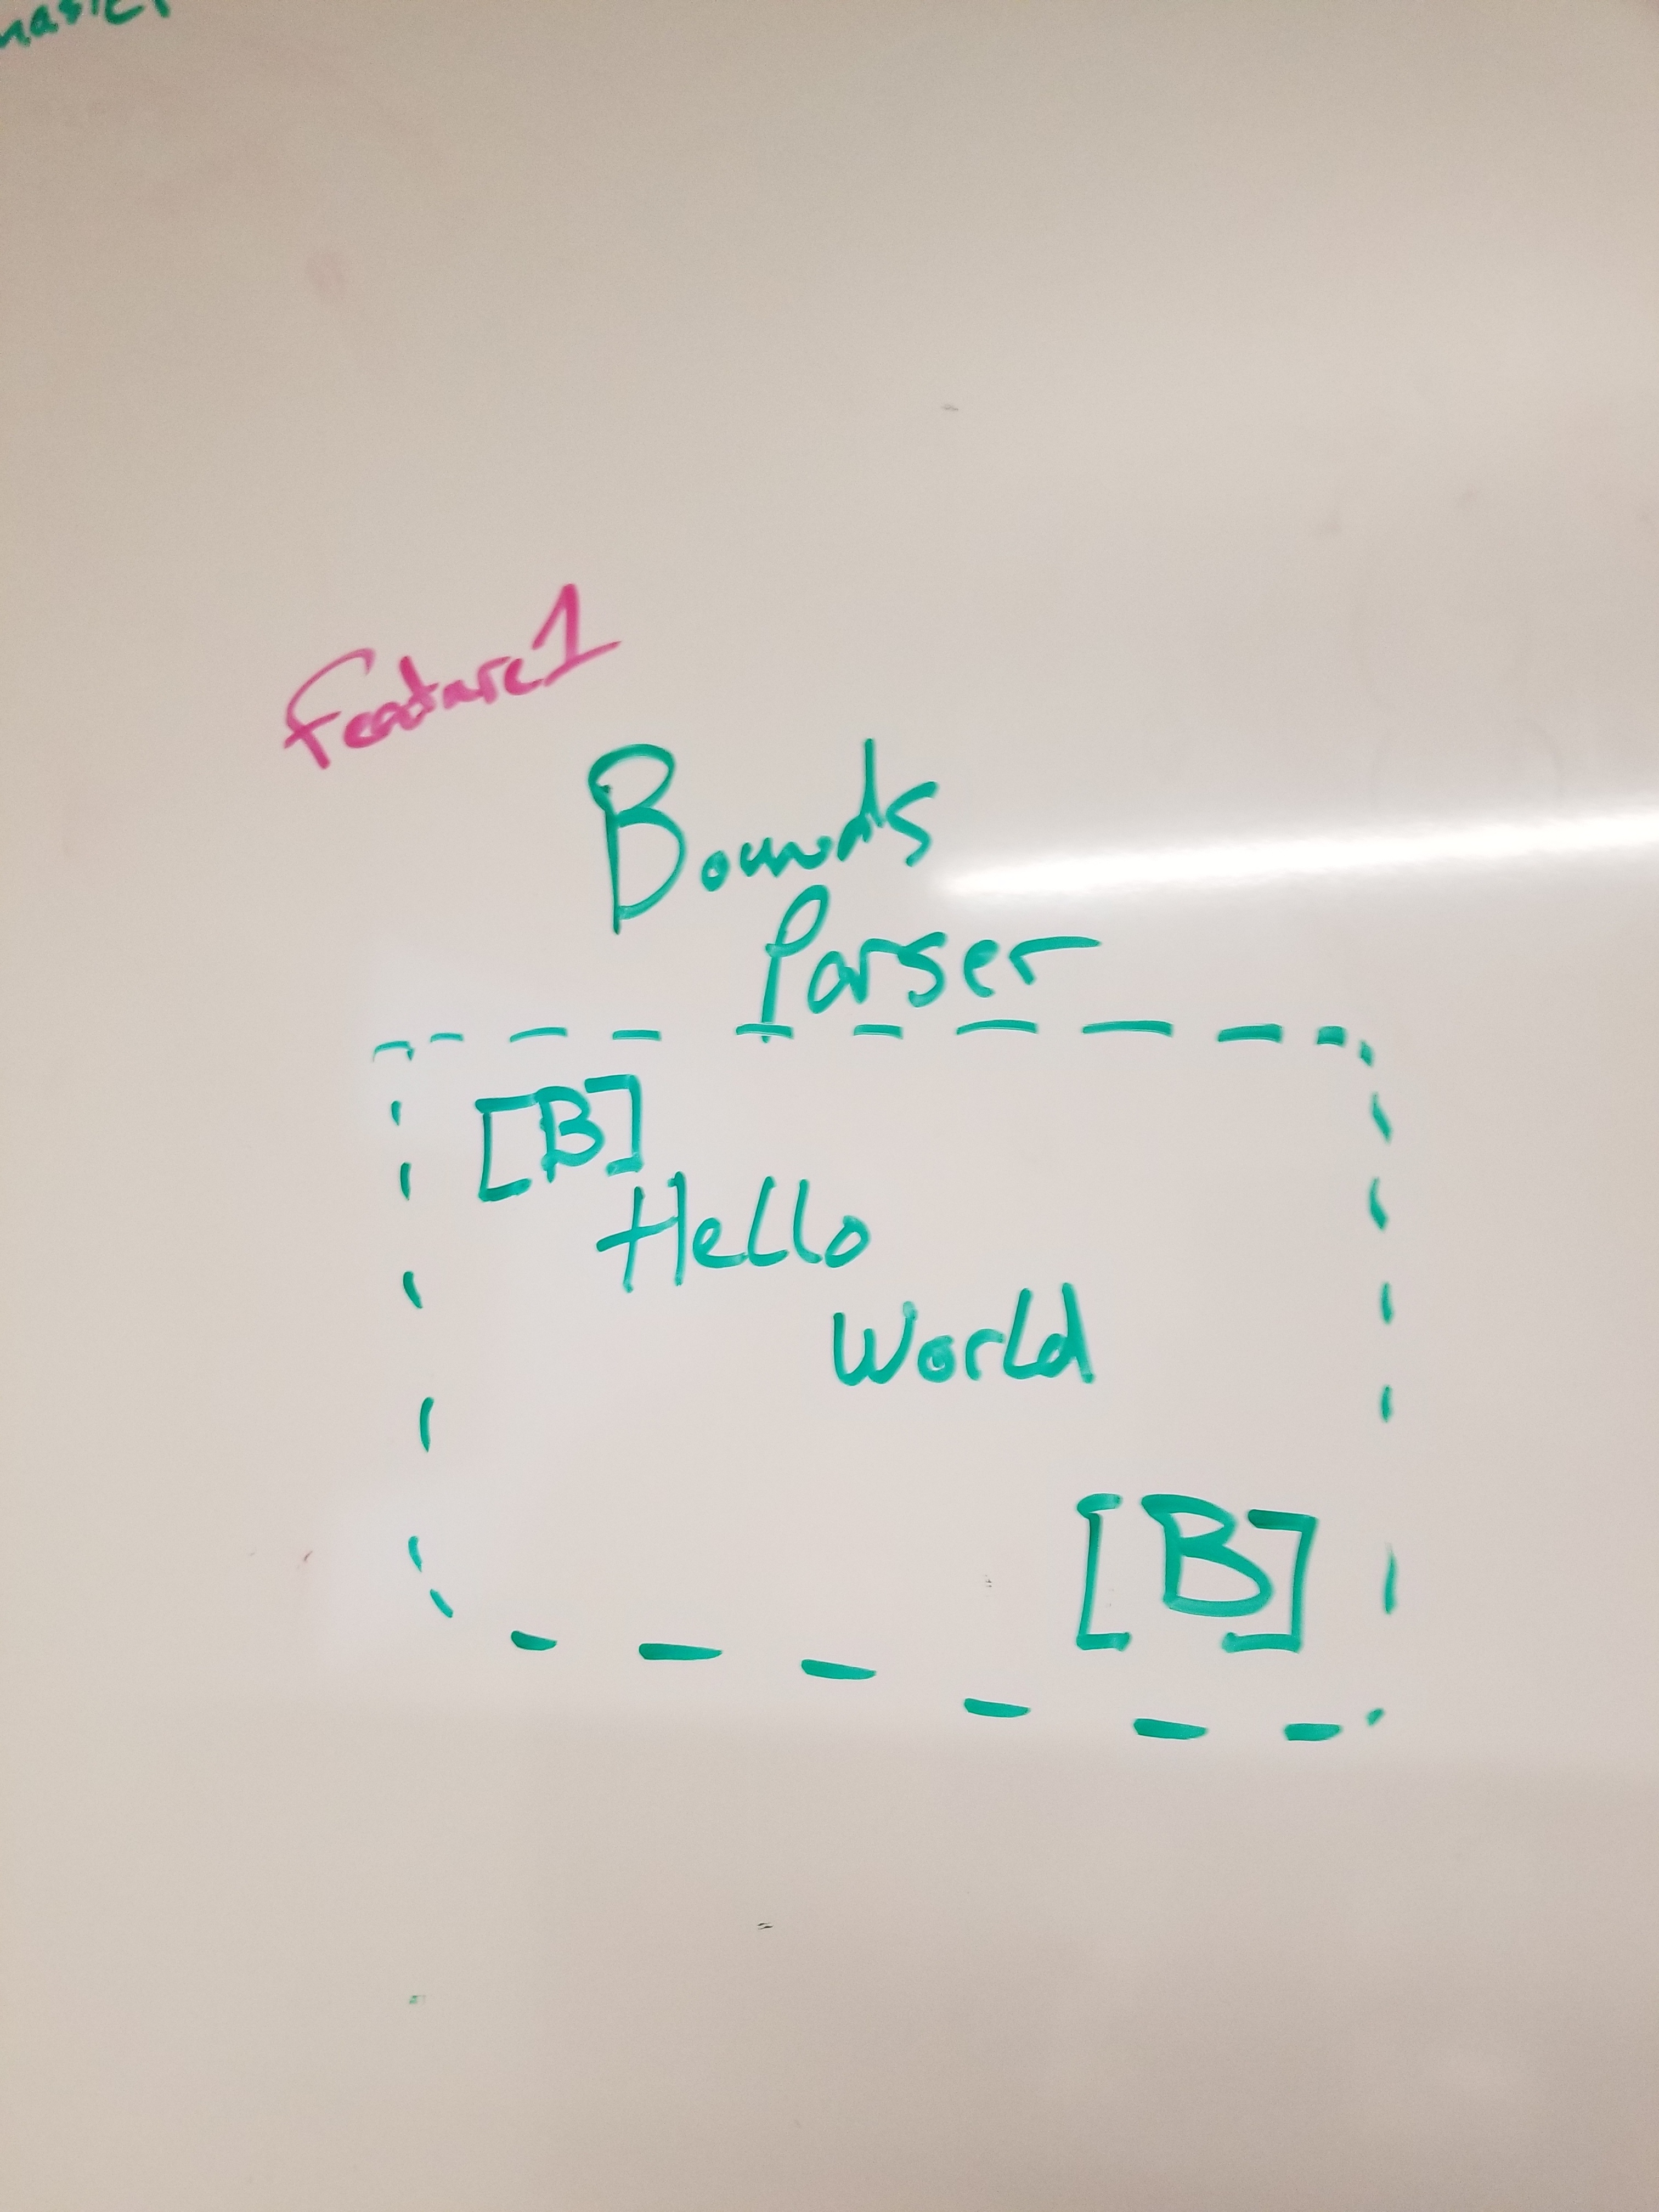 Feature1
Bounds
Parser
[B]
Hello
World
[B]